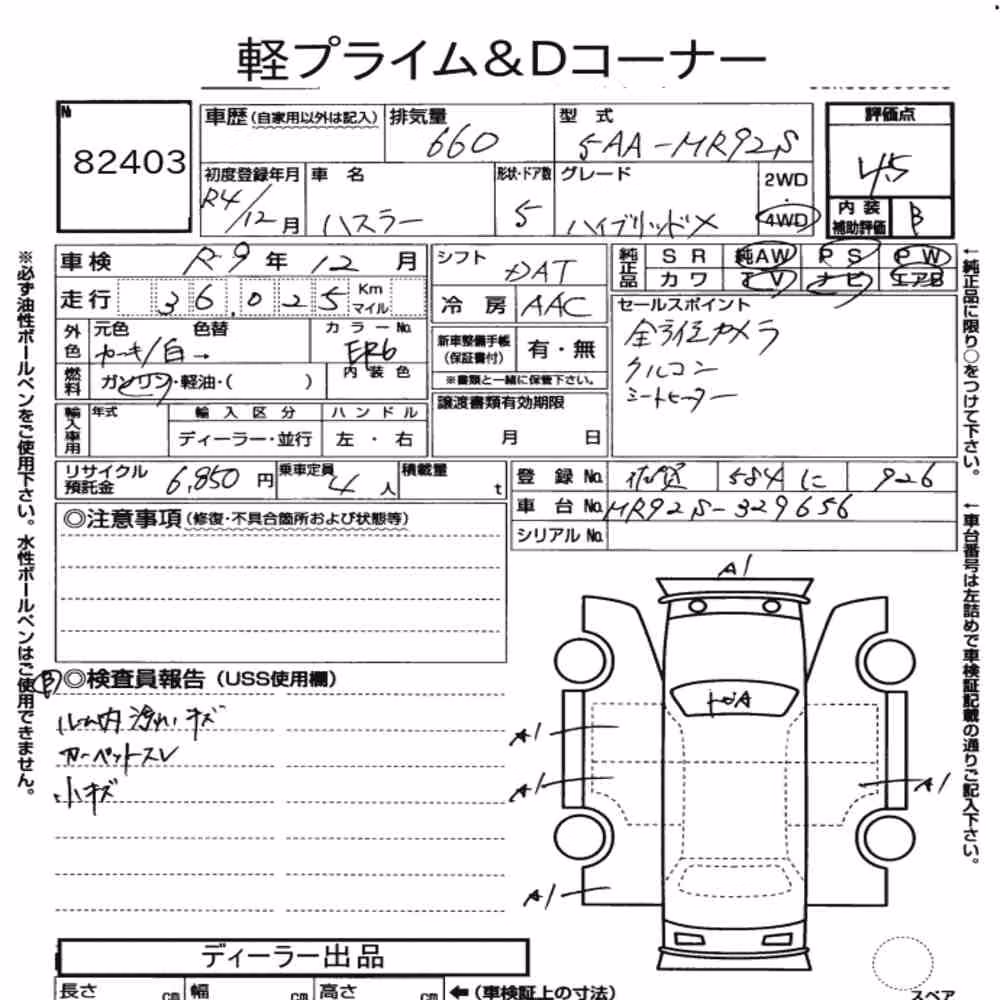 軽プライム&Dコーナー
№ 82403
車歴(自家用以外は記入)
排気量 660
型式 5AA-MR92S
評価点 4.5
初度登録年月 R4/12月
車名 ハスラー
形状・ドア数 5
グレード ハイブリッドX
2WD・4WD
内装補助評価 B
車検 R-9年12月
シフト DAT
純正品 SR 純AW PS PW
カワ TV ナビ エアB
走行 36,025 Km マイル
冷房 AAC
セールスポイント
全方位カメラ
クルコン
シートヒーター
外色 元色 色替 カーキ/白→
カラーNo. ER6
新車整備手帳(保証書付) 有・無
※書類と一緒に保管下さい。
燃料 ガソリン・軽油・( )
内装色
譲渡書類有効期限
月 日
輸入車用 年式 輸入区分 ハンドル
ディーラー・並行 左・右
リサイクル預託金 6,850円
乗車定員 4人
積載量 t
登録No. 佐賀 584 に 926
車台No. MR92S-329656
シリアルNo.
◎注意事項(修復・不具合箇所および状態等)
B ◎検査員報告(USS使用欄)
ルーム内 汚れ キズ
カーペットスレ
小キズ
A1
A1
A1
A1
A1
ディーラー出品
長さ cm 幅 cm 高さ cm ←(車検証上の寸法)
スペア
※必ず油性ボールペンをご使用下さい。水性ボールペンはご使用できません。
←純正品に限り○をつけて下さい。
←車台番号は左詰めで車検証記載の通りご記入下さい。